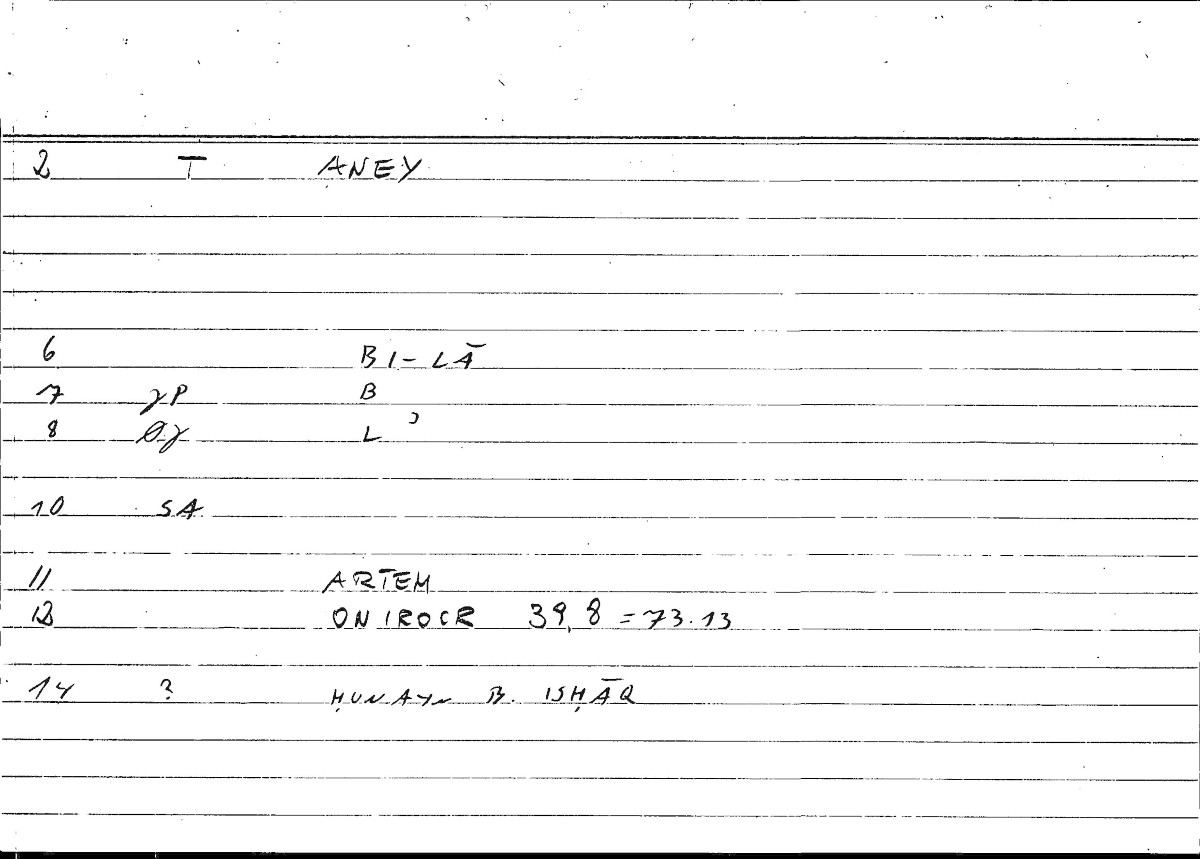 2 T ANEY
6 BI-LĀ
7 γP B
8 θγ L ʾ
10 SA
11 ARTEM
12 ONIROCR 39,8 = 73.13
14 ? ḤUNAYN B. ISḤĀQ